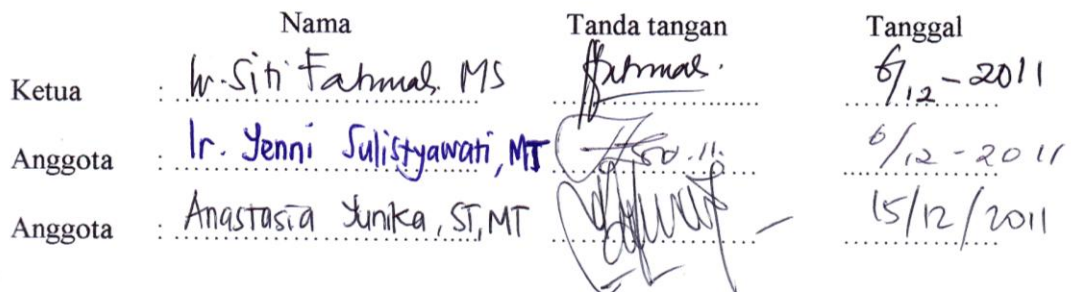 Nama Tanda tangan Tanggal
Ketua : Ir. Siti Fatmah. MS 6/12-2011
Anggota : Ir. Yenni Sulistyawati, MT 6/12-2011
Anggota : Anastasia Yunika, ST, MT 15/12/2011